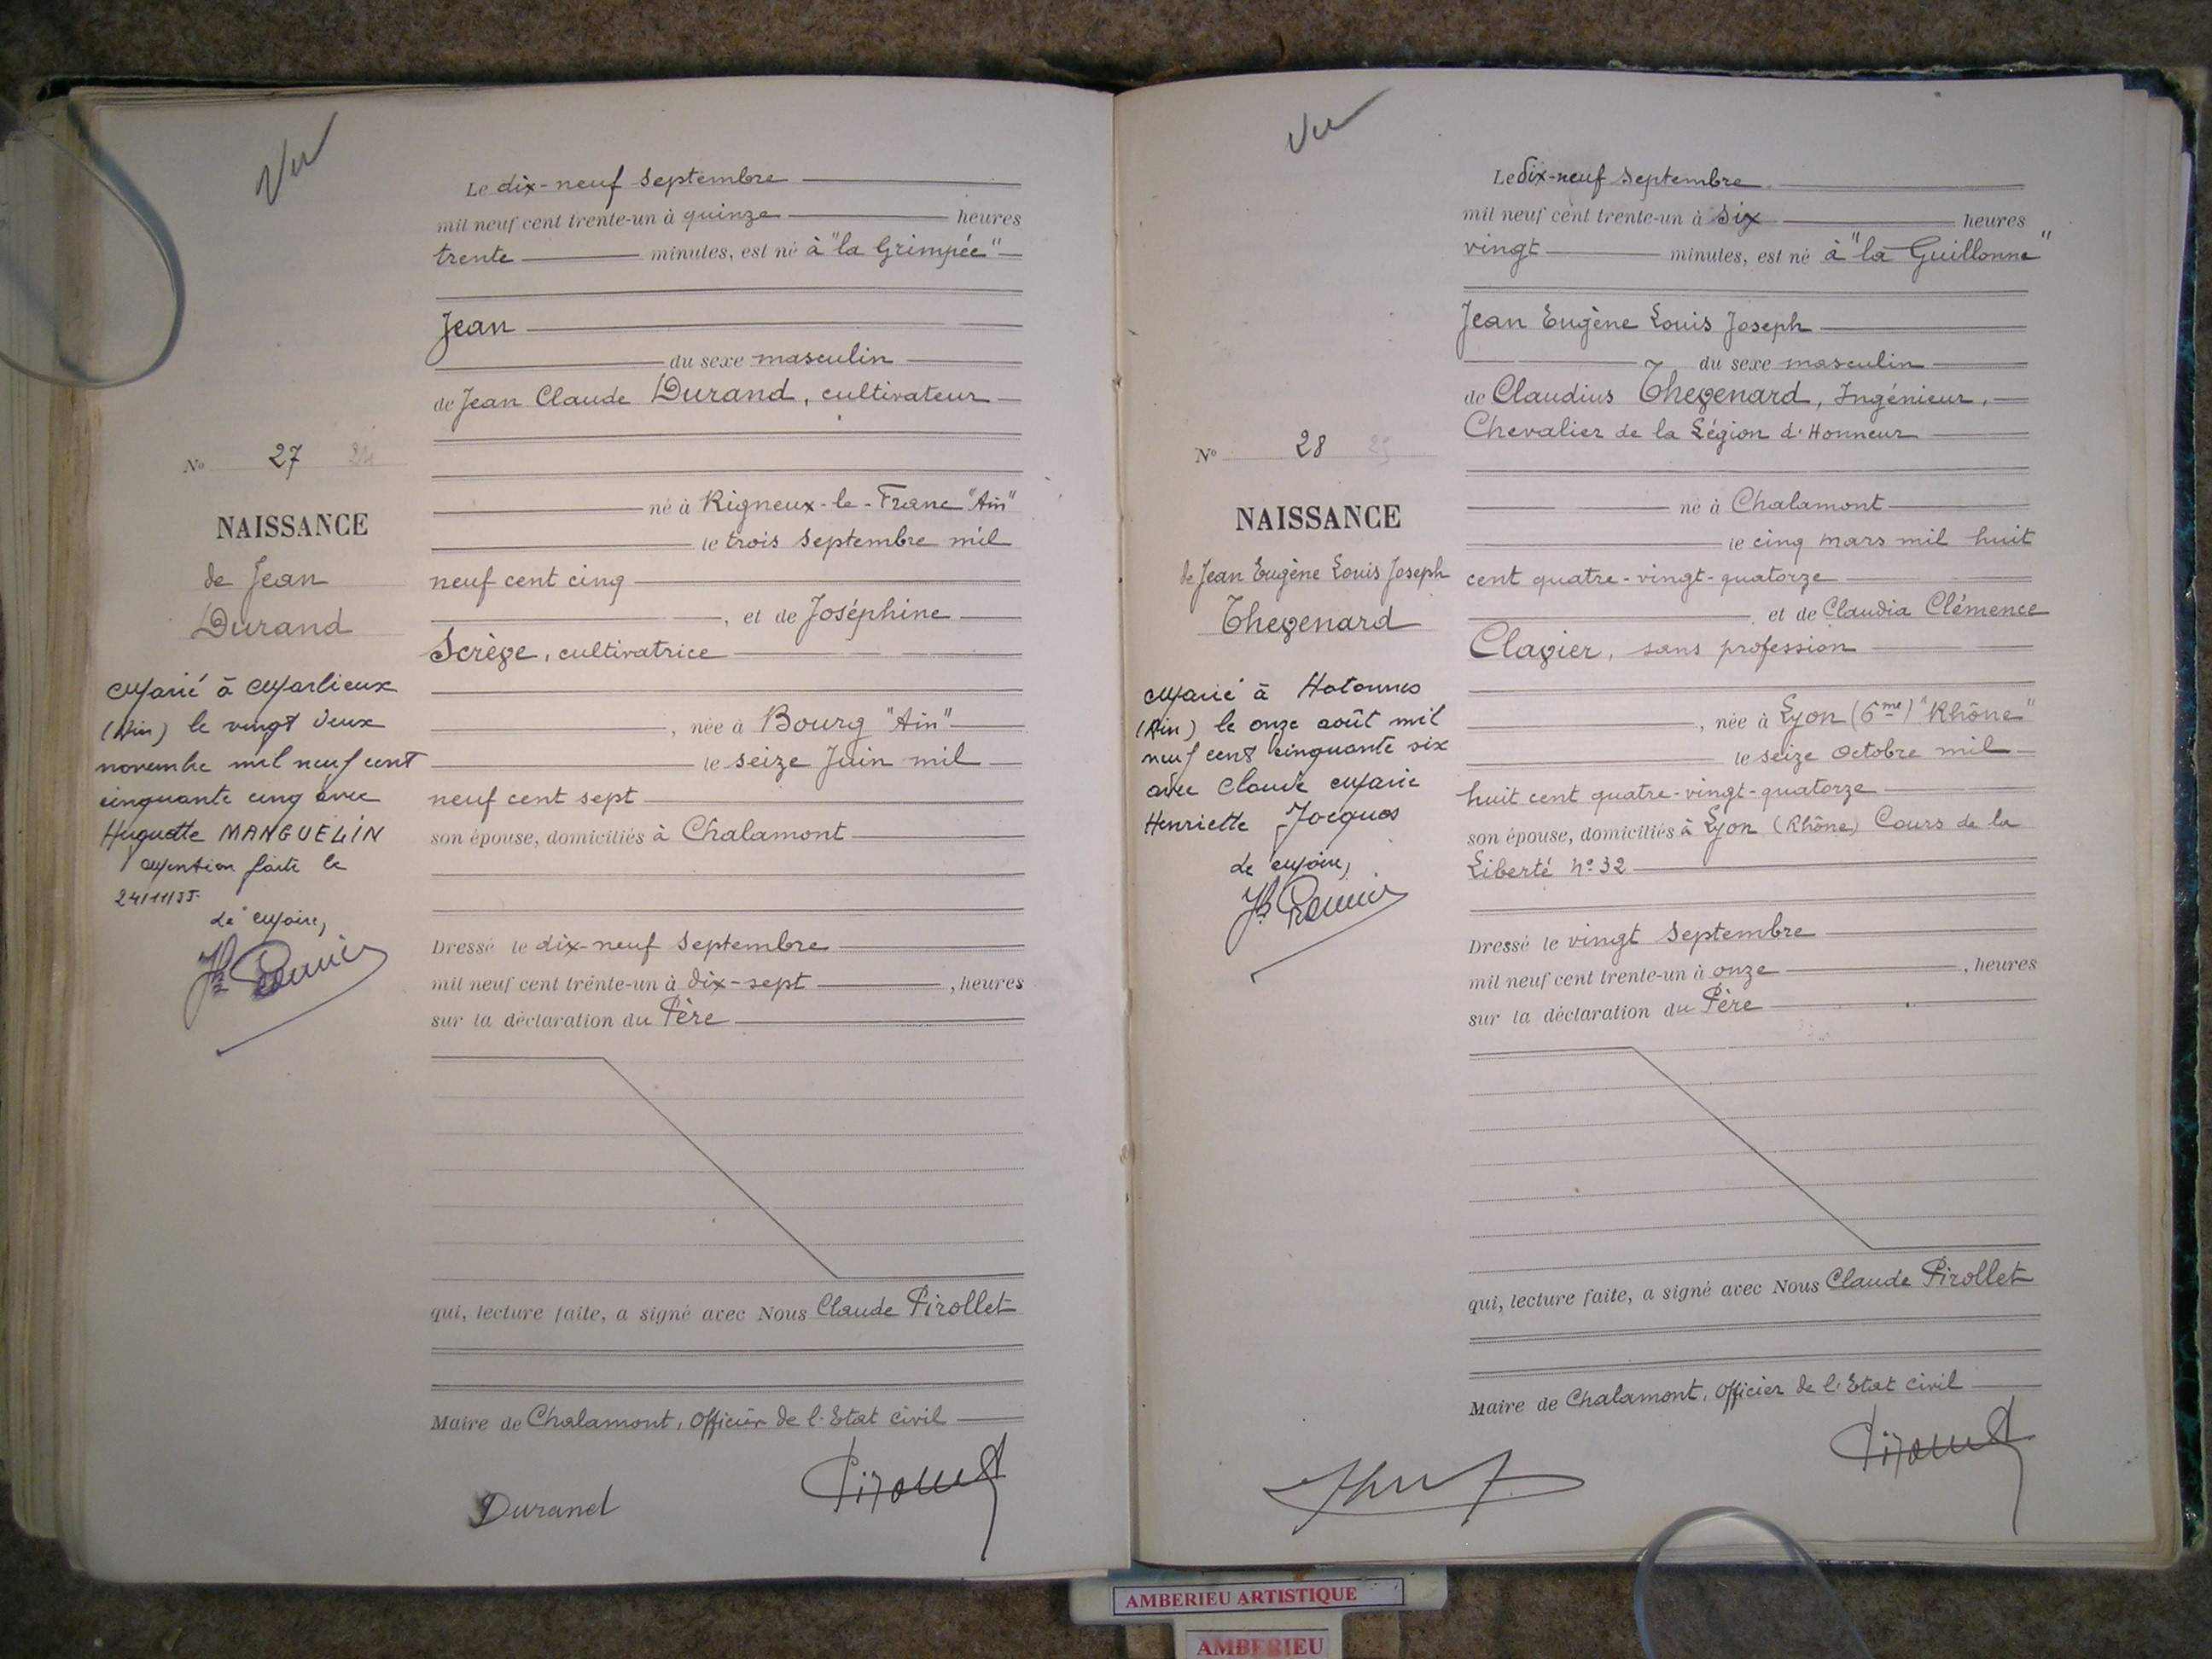 Vu
Le dix-neuf Septembre
mil neuf cent trente-un à quinze heures
trente minutes, est né à "la Grimpée"
Jean
du sexe masculin
de Jean Claude Durand, cultivateur
né à Rigneux-le-Franc "Ain"
le trois Septembre mil
neuf cent cinq
, et de Joséphine
Scrège, cultivatrice
, née à Bourg "Ain"
le seize Juin mil
neuf cent sept
son épouse, domiciliés à Chalamont
Dressé le dix-neuf Septembre
mil neuf cent trente-un à dix-sept , heures
sur la déclaration du Père
qui, lecture faite, a signé avec Nous Claude Pirollet
Maire de Chalamont, Officier de l'Etat civil
Durand
Pirollet
No 27
NAISSANCE
de Jean
Durand
Marié à Marlieux
(Ain) le vingt deux
novembre mil neuf cent
cinquante cinq avec
Huguette MANGUELIN
Mention faite le
24/11/55
Le Maire,
Vu
Le dix-neuf Septembre
mil neuf cent trente-un à six heures
vingt minutes, est né à "la Guillonne"
Jean Eugène Louis Joseph
du sexe masculin
de Claudius Thegenard, Ingénieur,
Chevalier de la Légion d'Honneur
né à Chalamont
le cinq mars mil huit
cent quatre-vingt-quatorze
et de Claudia Clémence
Clagier, sans profession
, née à Lyon (6me) "Rhône"
le seize Octobre mil
huit cent quatre-vingt-quatorze
son épouse, domiciliés à Lyon (Rhône) Cours de la
Liberté no 32
Dressé le vingt Septembre
mil neuf cent trente-un à onze , heures
sur la déclaration du Père
qui, lecture faite, a signé avec Nous Claude Pirollet
Maire de Chalamont, Officier de l'Etat civil
Pirollet
No 28
NAISSANCE
de Jean Eugène Louis Joseph
Thegenard
Marié à Hotonnes
(Ain) le onze août mil
neuf cent cinquante six
avec Claude Marie
Henriette Jacques
Le Maire,
AMBERIEU ARTISTIQUE
AMBERIEU